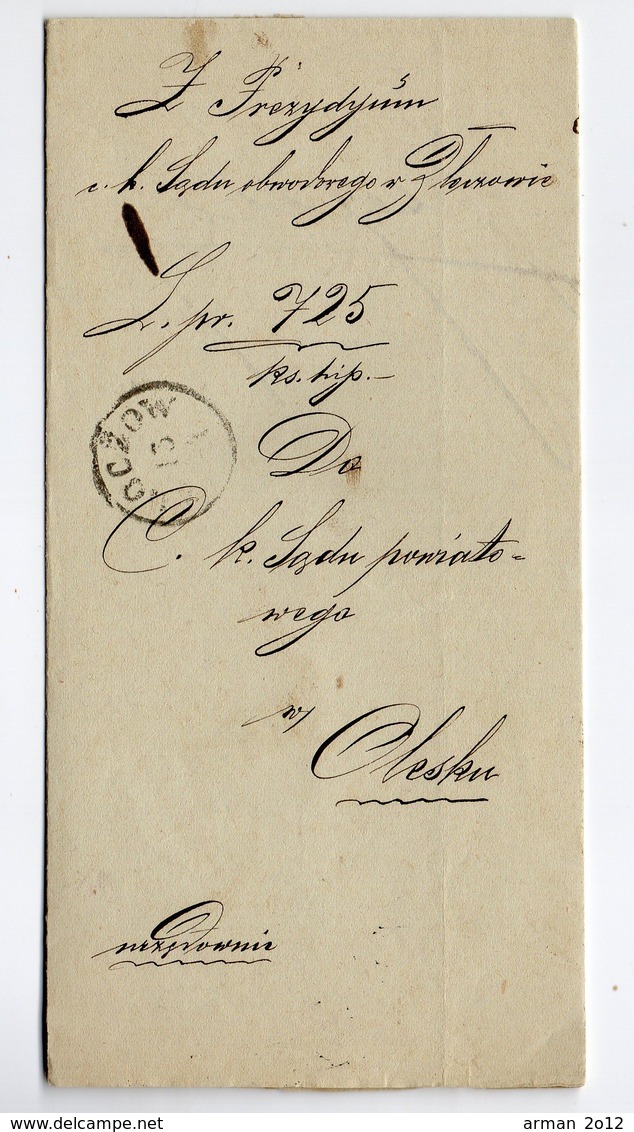 Z Prezydyum
c. k. Sądu obwodowego w Złoczowie
L. pr. 725
ks. hip. –
OCZOW
13
Do
C. k. Sądu powiato-
wego
w
Olesku
urzędownie
www.delcampe.net
arman 2012